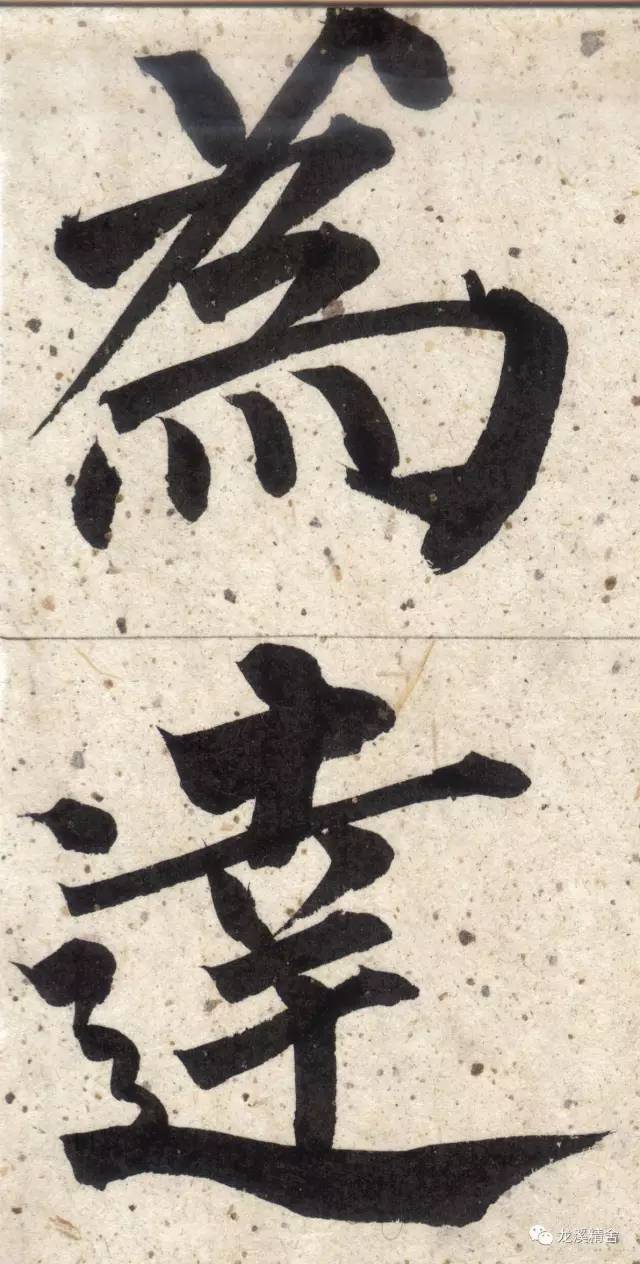 為
達
龙溪精舍